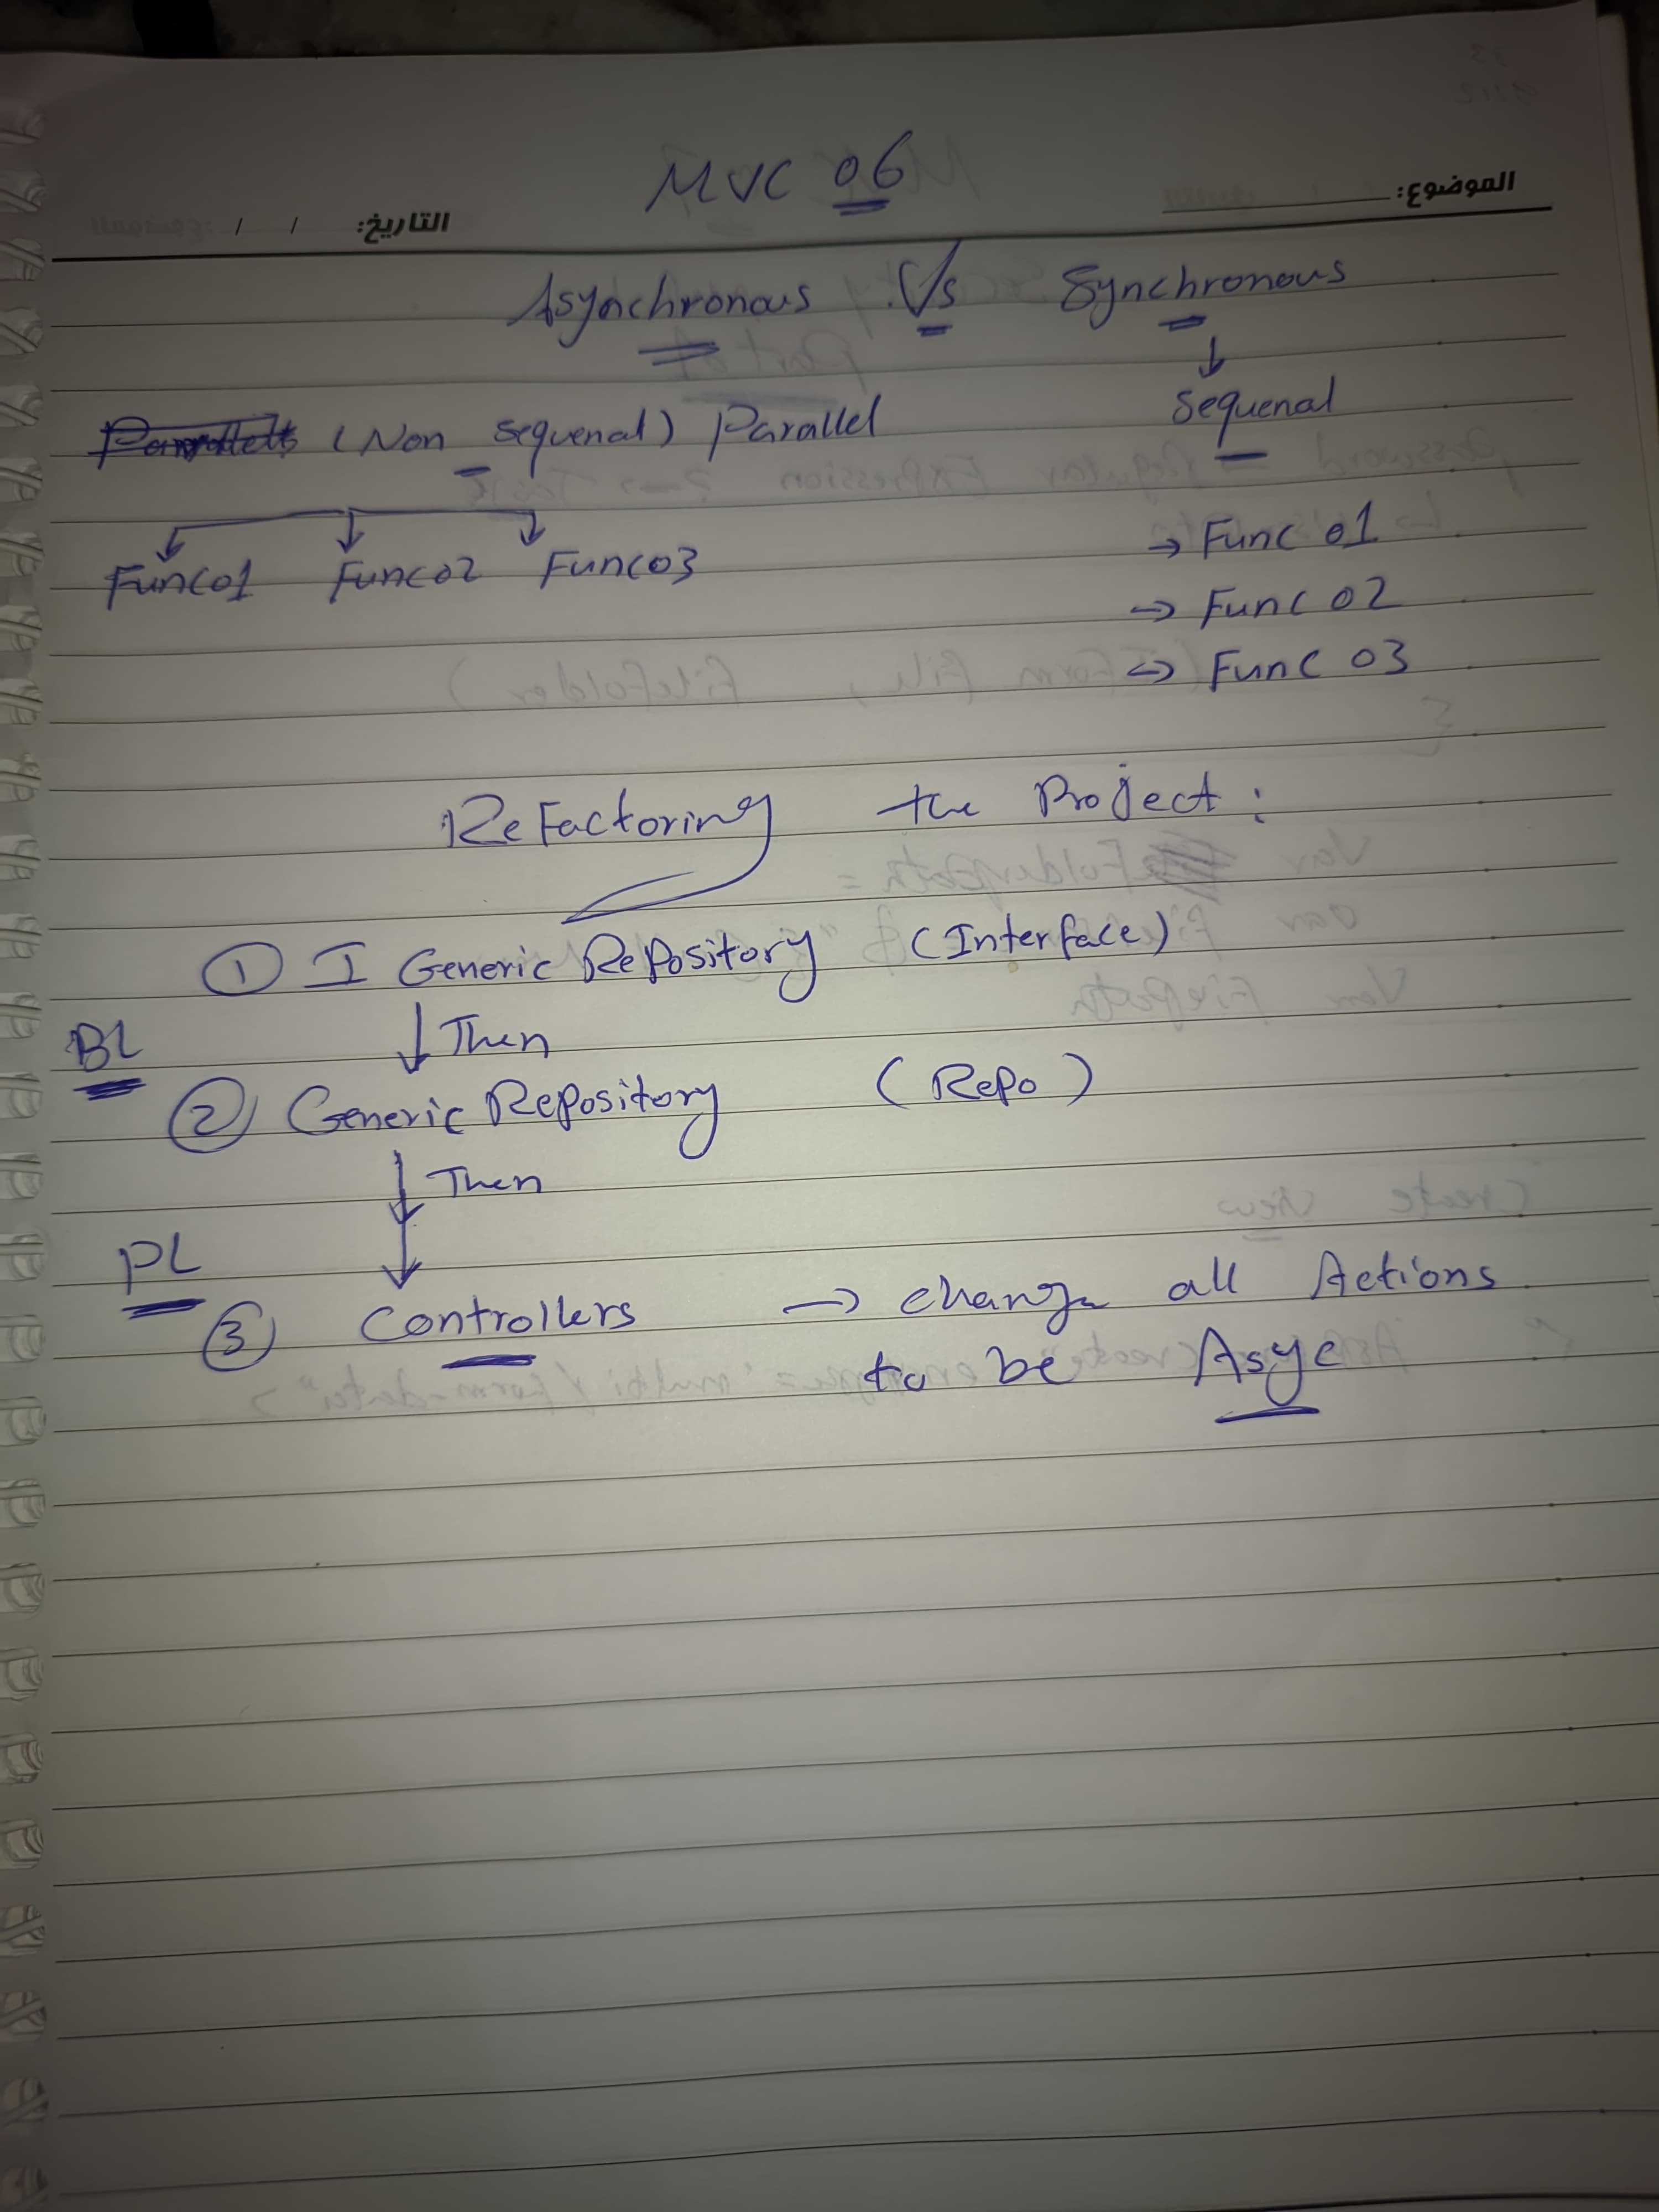 MVC 06
الموضوع:
التاريخ: / /
Asynchronous Vs Synchronous
(Non sequenal) Parallel
Sequenal
Func01 Func02 Func03
→ Func 01
→ Func 02
→ Func 03
ReFactoring the Project:
① I Generic Repository (Interface)
↓ Then
BL
② Generic Repository (Repo)
↓ Then
PL
③ Controllers → change all Actions
to be Asyc